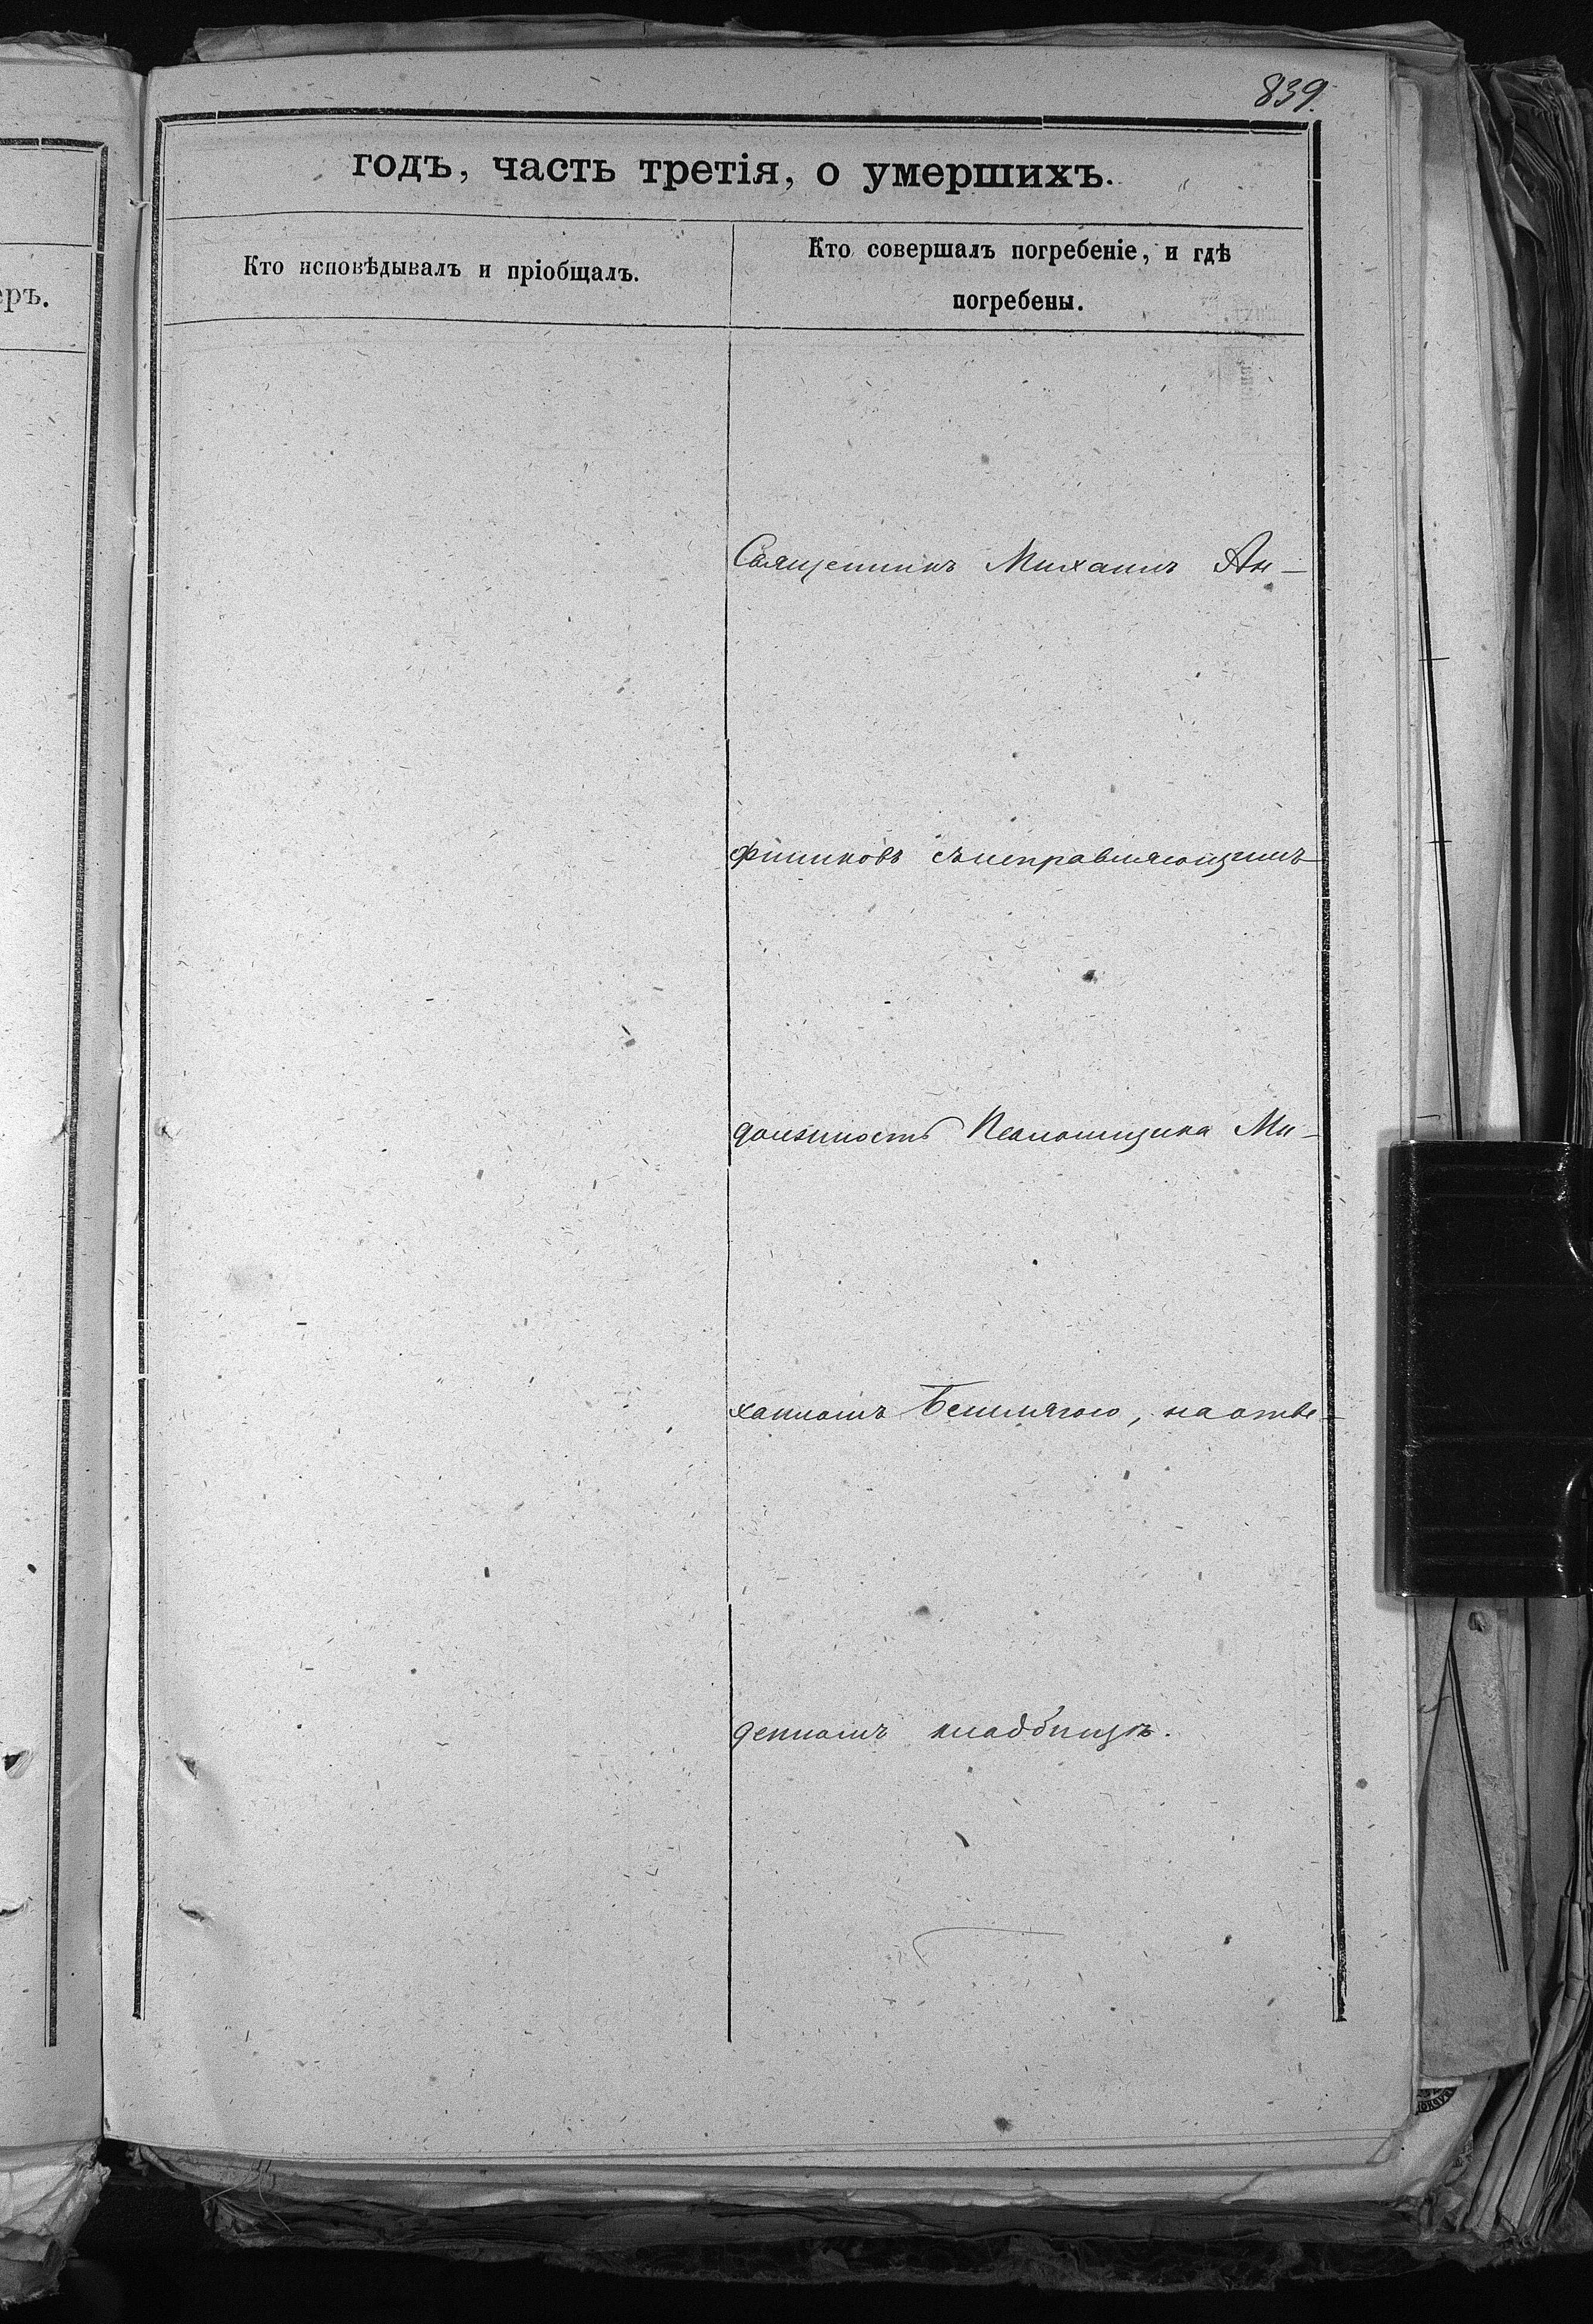 839.
годъ, часть третія, о умершихъ.
Кто исповѣдывалъ и пріобщалъ.
Кто совершалъ погребеніе, и гдѣ
погребены.
еръ.
Священникъ Михаилъ Ан-
финиковъ съ исправляющимъ
должность Псаломщика Ми-
хаиломъ, на отве-
денномъ кладбищѣ.